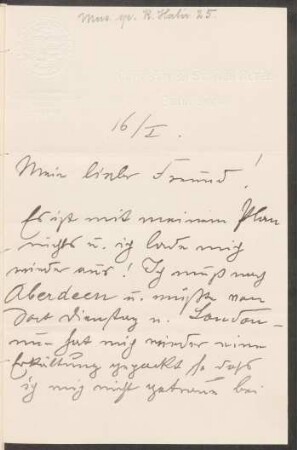 Mus. ep. R. Hahn 25.
16/I.
Mein lieber Freund!
Es ist mit meinem Plan
nichts u. ich lade mich
wieder aus! Ich muß nach
Aberdeen u. müßte von
dort Dienstag n. London –
nun hat mich wieder eine
Erkältung gepackt so daß
ich mich nicht getraue bei